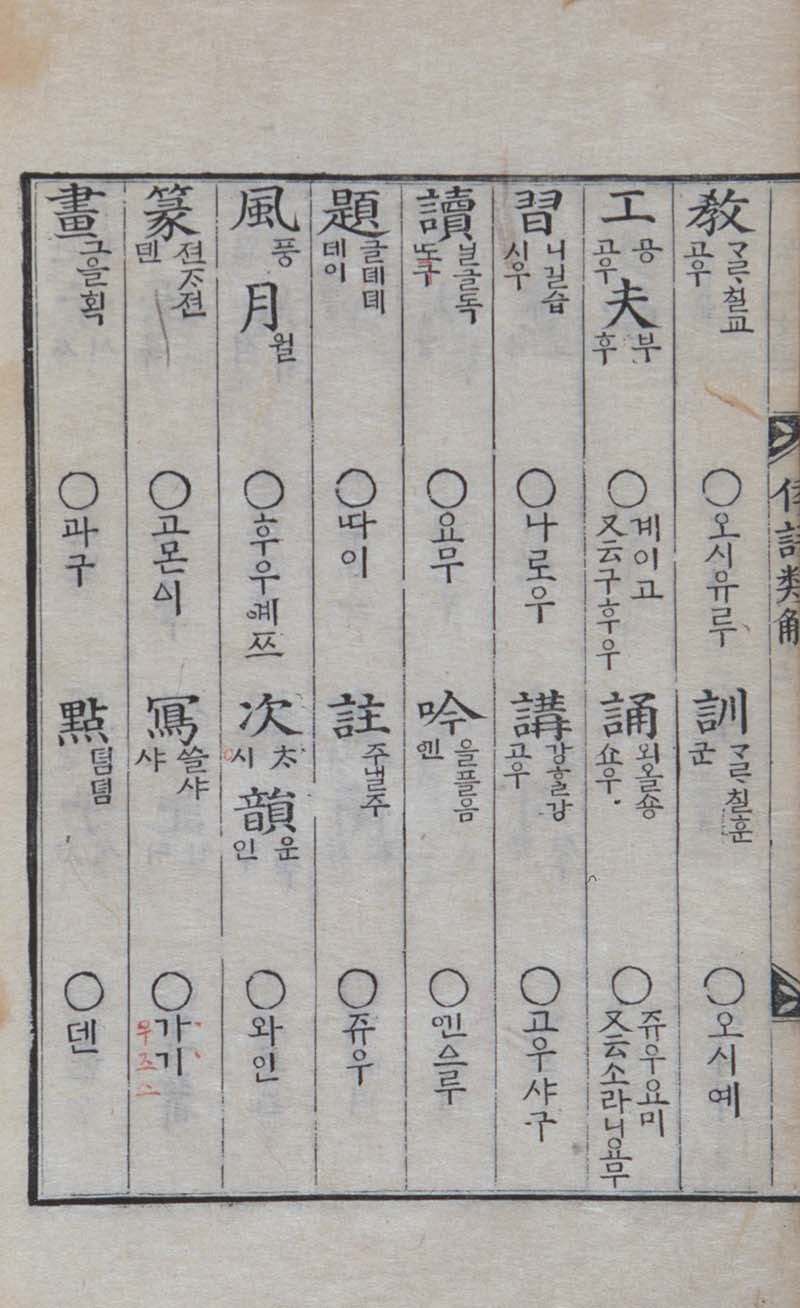 倭語類解
教 ᄀᆞᄅᆞ칠교 고우 ○오시유루
訓 ᄀᆞᄅᆞ칠훈 군 ○오시예
工 공 고우 夫 부 후 ○계이고 又云구후우
誦 외올숑 쇼우 ○쥬우요미 又云소라니요무
習 니길습 시우 ○나로우
講 강홀강 고우 ○고우샤구
讀 닐글독 도구 ○요무
吟 을플음 ᅌᅵᆫ ○ᅌᅵᆫᅀᅳ루
題 글뎨뎨 데이 ○따이
註 주낼주 ○쥬우
風 풍 月 월 ○후우ᅌᅨ쯔
次 ᄎᆞ 시 韻 운 인 ○와인
篆 젼ᄌᆞ젼 뎬 ○고몬ᅀᅵ
寫 쓸샤 샤 ○가기 우즈스
畫 그을획 ○과구
點 뎜뎜 ○덴